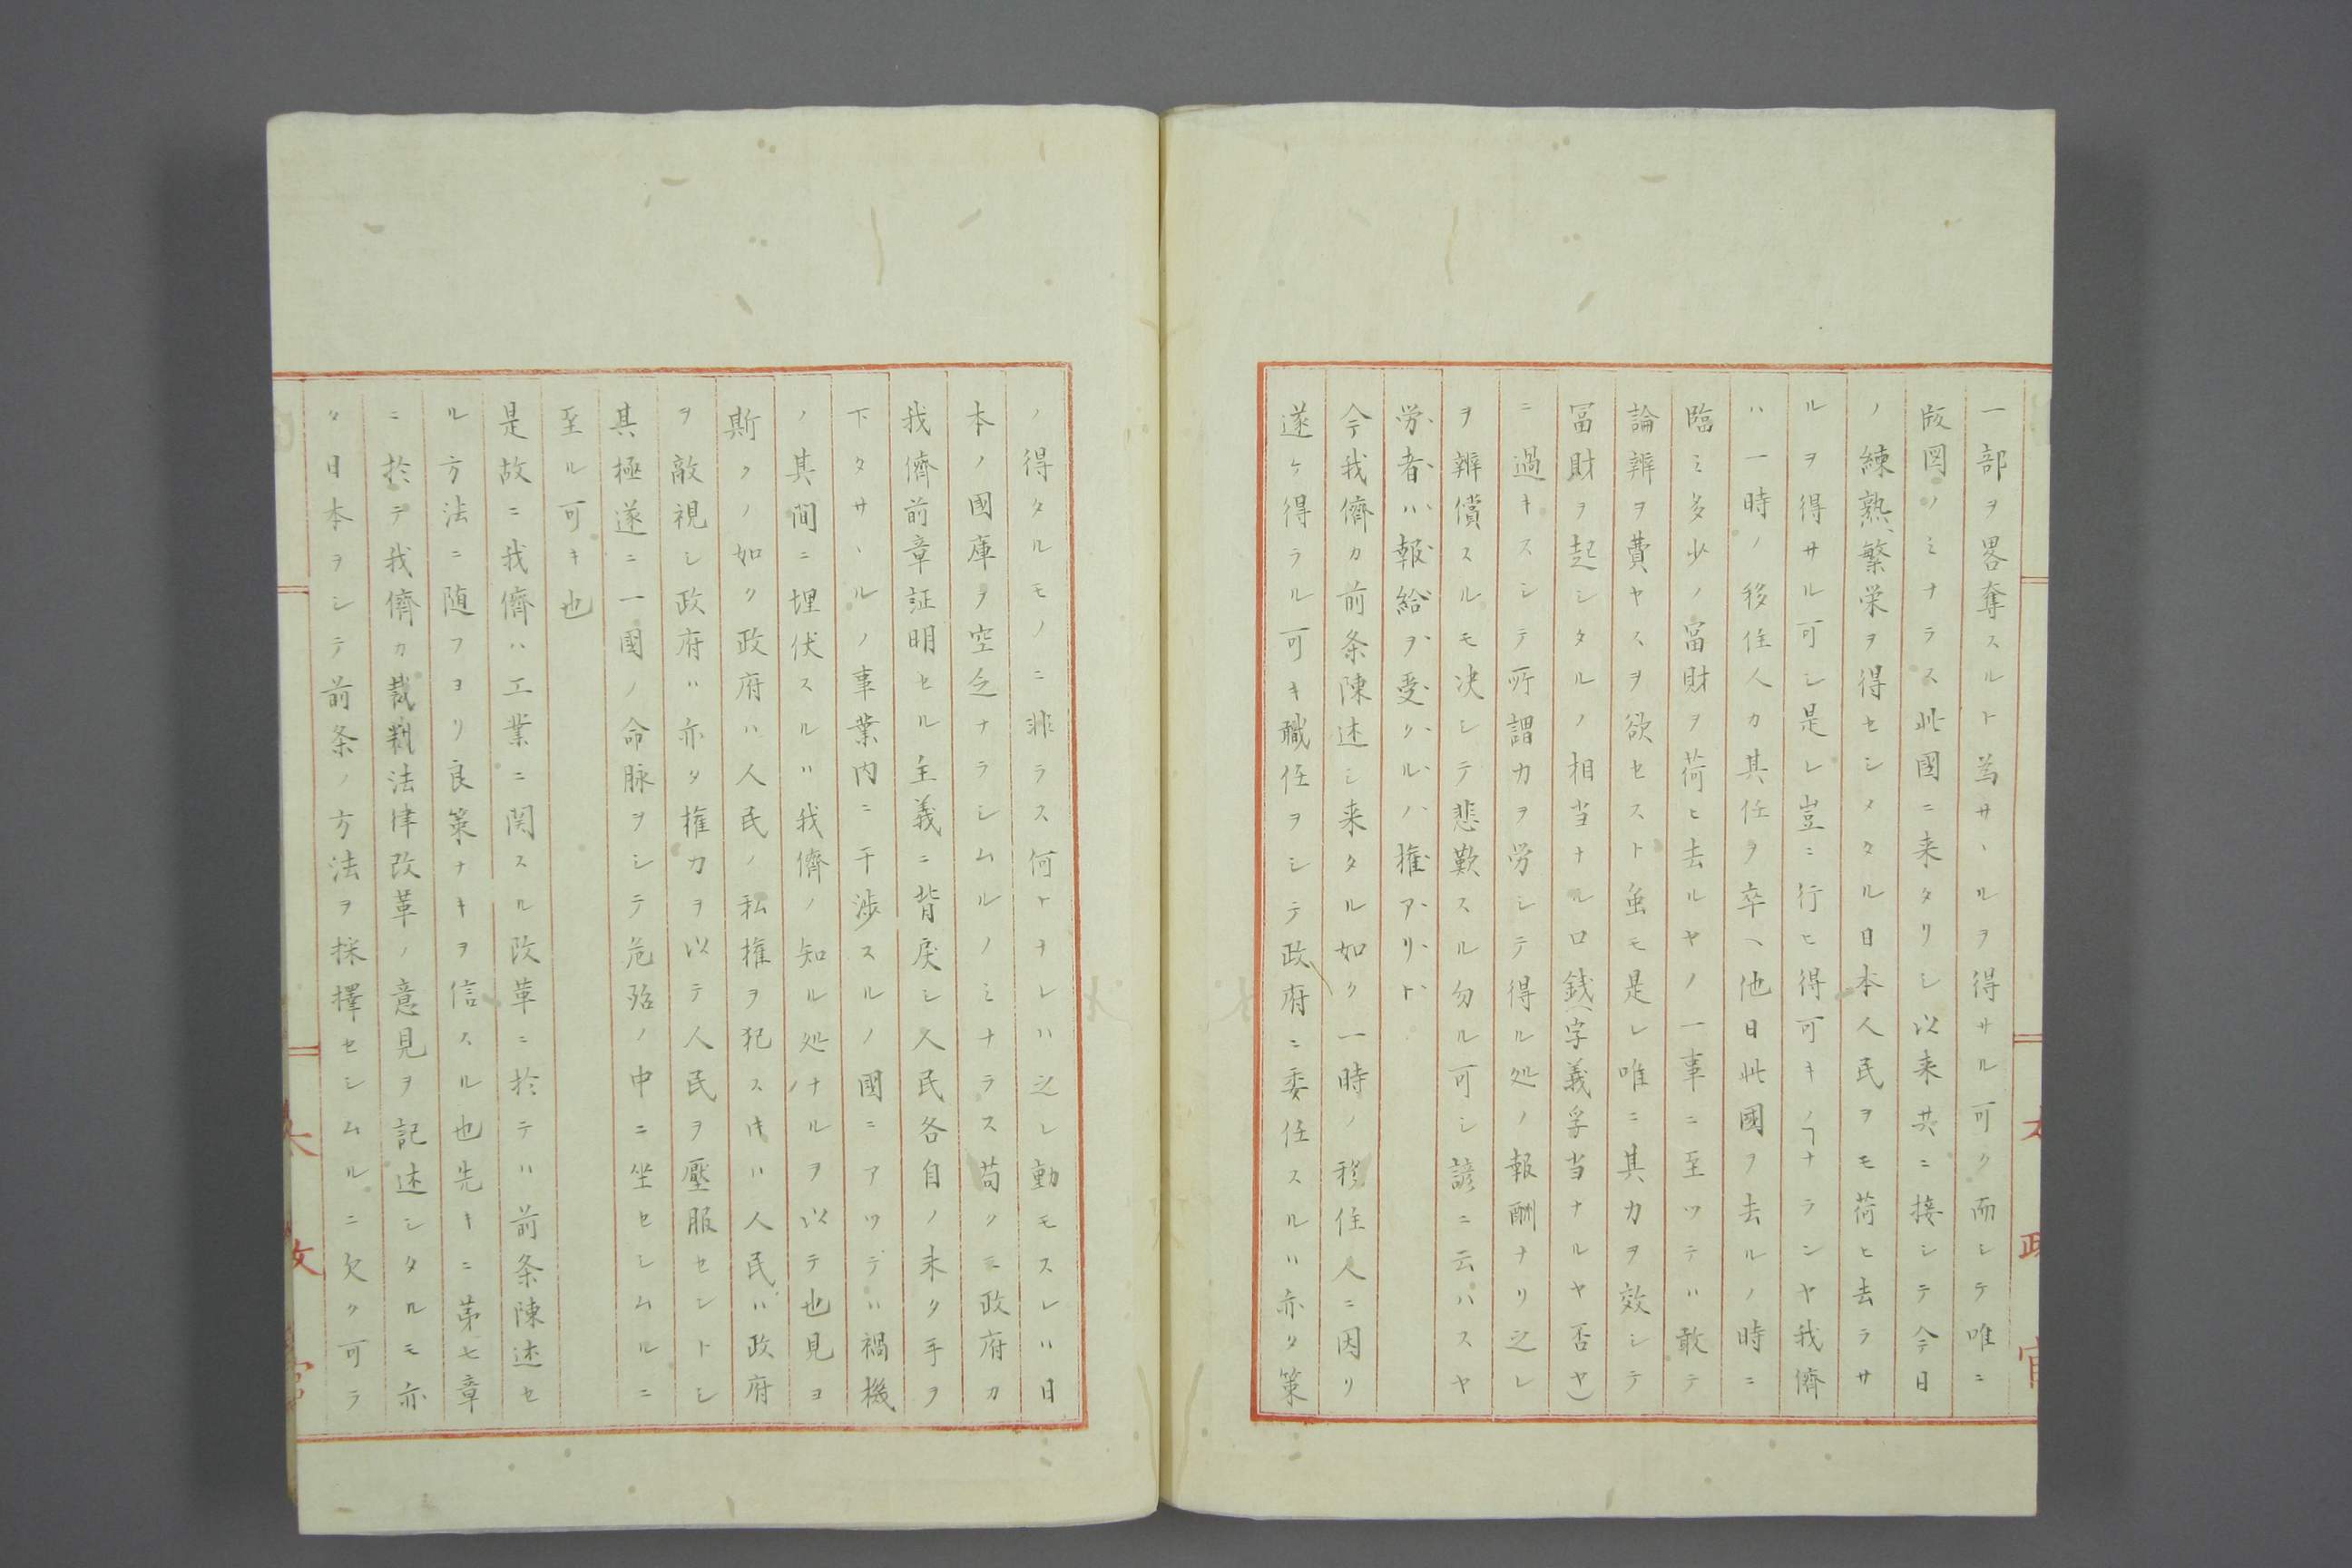 一部ヲ畧奪スルト為サヽルヲ得サル可ク而シテ唯ニ
版図ノミナラス此國ニ来タリシ以来共ニ接シテ今日
ノ練熟繁栄ヲ得セシメタル日本人民ヲモ荷ヒ去ラサ
ルヲ得サル可シ是レ豈ニ行ヒ得可キノヿナランヤ我儕
ハ一時ノ移住人カ其任ヲ卒ヘ他日此國ヲ去ルノ時ニ
臨ミ多少ノ富財ヲ荷ヒ去ルヤノ一事ニ至ツテハ敢テ
論辨ヲ費ヤスヲ欲セスト虽モ是レ唯ニ其力ヲ效シテ
冨財ヲ起シタルノ相当ナル口銭(字義孚当ナルヤ否ヤ)
ニ過キスシテ所謂力ヲ労シテ得ル処ノ報酬ナリ之レ
ヲ辨償スルモ决シテ悲歎スル勿ル可シ諺ニ云ハスヤ
労者ハ報給ヲ受クルハ権アリト
今我儕カ前条陳述シ来タル如ク一時ノ移住人ニ因リ
遂ケ得ラル可キ職任ヲシテ政府ニ委任スルハ亦タ策
ノ得タルモノニ非ラス何トナレハ之レ動モスレハ日
本ノ國庫ヲ空乏ナラシムルノミナラス苟クモ政府カ
我儕前章証明セル主義ニ背戻シ人民各自ノ未タ手ヲ
下タサヽルノ事業内ニ干渉スルノ國ニアツテハ禍機
ノ其間ニ埋伏スルハ我儕ノ知ル処ナルヲ以テ也見ヨ
斯クノ如ク政府ハ人民ノ私権ヲ犯スキハ人民ハ政府
ヲ敵視シ政府ハ亦タ権力ヲ以テ人民ヲ壓服セントシ
其極遂ニ一國ノ命脉ヲシテ危殆ノ中ニ坐セシムルニ
至ル可キ也
是故ニ我儕ハ工業ニ関スル改革ニ於テハ前条陳述セ
ル方法ニ随フヨリ良策ナキヲ信スル也先キニ第七章
ニ於テ我儕カ裁判法律改革ノ意見ヲ記述シタルモ亦
タ日本ヲシテ前条ノ方法ヲ採擇セシムルニ欠ク可ラ
太政官